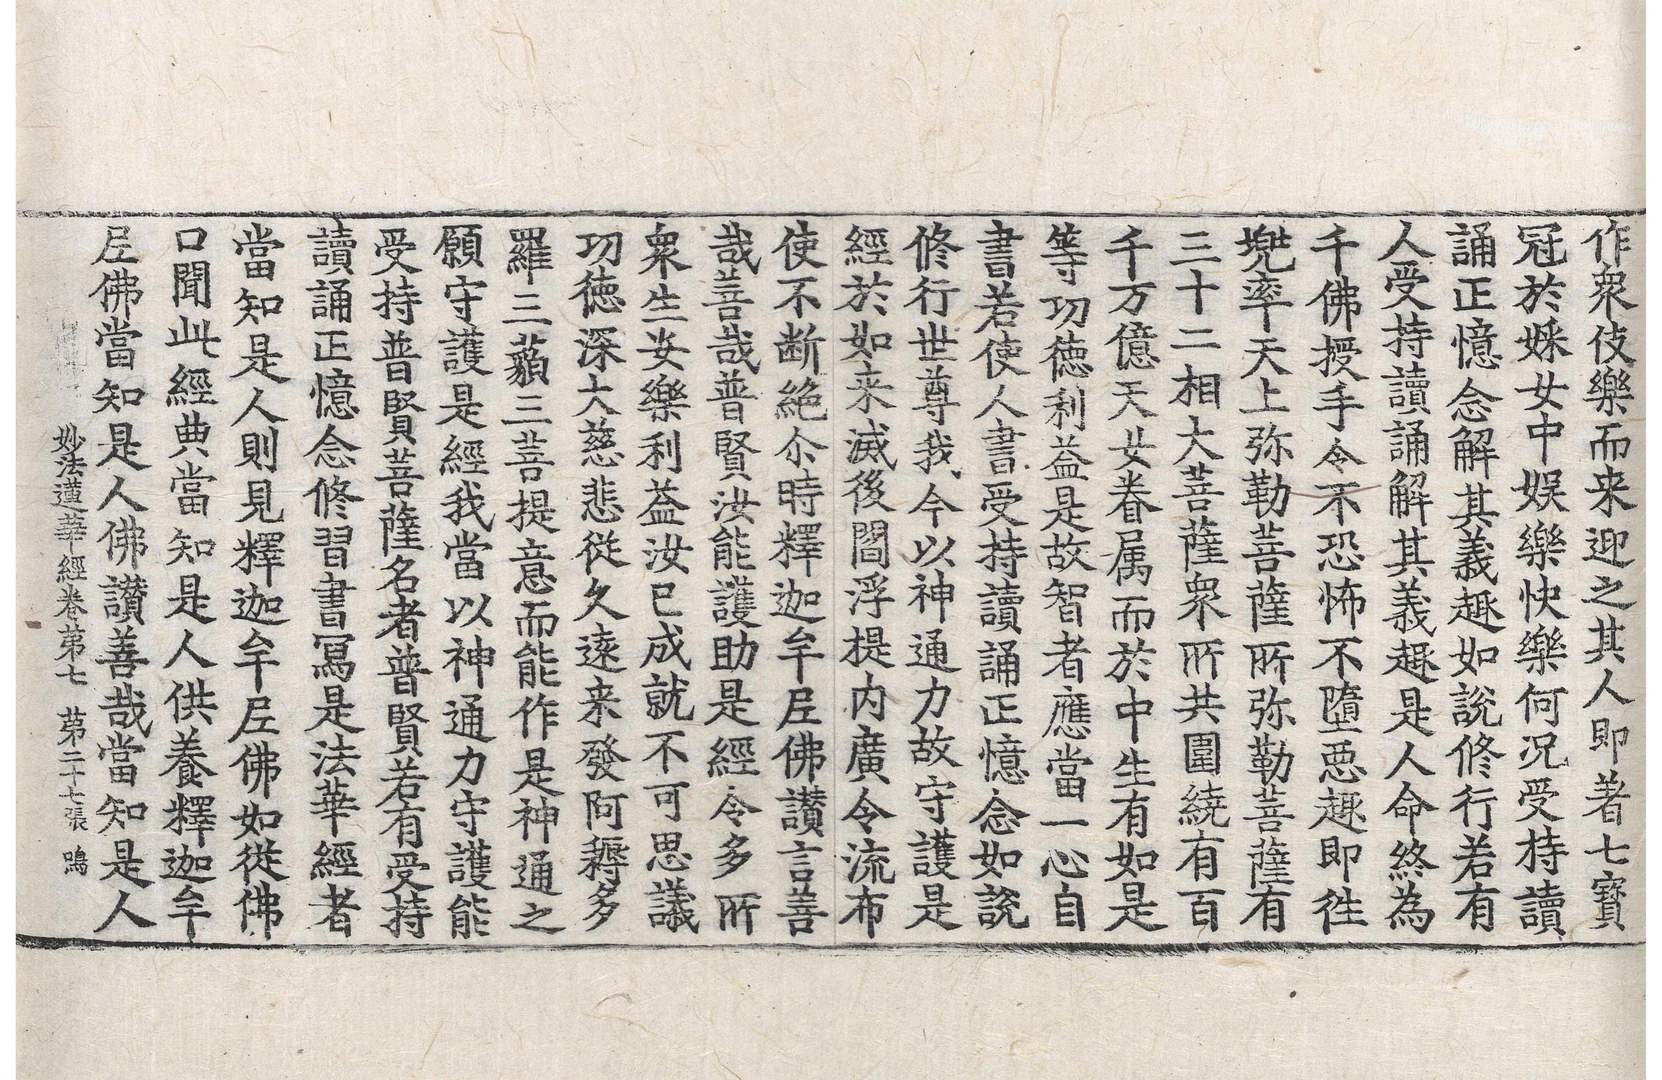 作衆伎樂而来迎之其人即著七寳
冠於婇女中娱樂快樂何况受持讀
誦正憶念解其義趣如說修行若有
人受持讀誦解其義趣是人命終為
千佛授手令不恐怖不墮悪趣即徃
兠率天上弥勒菩薩所弥勒菩薩有
三十二相大菩薩衆所共圍繞有百
千万億天女眷属而於中生有如是
等功徳利益是故智者應當一心自
書若使人書受持讀誦正憶念如說
修行世尊我今以神通力故守護是
經於如来滅後閻浮提内廣令流布
使不断絶尒時釋迦牟尼佛讃言善
哉善哉普賢汝能護助是經令多所
衆生安樂利益汝已成就不可思議
功徳深大慈悲從久遠来發阿耨多
羅三藐三菩提意而能作是神通之
願守護是經我當以神通力守護能
受持普賢菩薩名者普賢若有受持
讀誦正憶念修習書冩是法華經者
當知是人則見釋迦牟尼佛如從佛
口聞此經典當知是人供養釋迦牟
尼佛當知是人佛讃善哉當知是人
妙法蓮華經卷第七 第二十七張 鳴